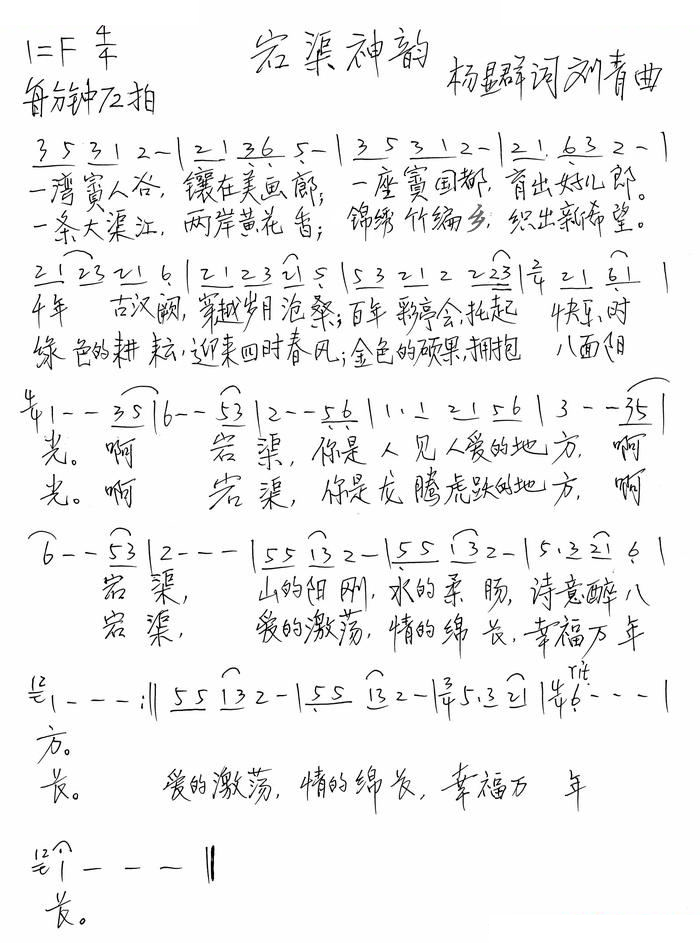 1=F 4/4 宕渠神韵
每分钟72拍 杨显群词 刘青曲
3 5 3 1 2 - | 2 1 3 6 5 - | 3 5 3 1 2 - | 2 1. 6 3 2 - |
一湾賨人谷，镶在美画廊；一座賨国都，育出好儿郎。
一条大渠江，两岸黄花香；锦绣竹编乡，织出新希望。
2 1 2 3 2 1 6 | 2 1 2 3 2 1 5 | 5 3 2 1 2 2 2 3 | 2/4 2 1 6 1 |
千年 古汉阙，穿越岁月沧桑；百年彩亭会，托起 快乐时
绿色的耕耘，迎来四时春风；金色的硕果，拥抱 八面阳
4/4 1 - - 3 5 | 6 - - 5 3 | 2 - - 5 6 | 1. 1 2 1 5 6 | 3 - - 3 5 |
光。啊 宕渠，你是人见人爱的地方，啊
光。啊 宕渠，你是龙腾虎跃的地方，啊
6 - - 5 3 | 2 - - - | 5 5 1 3 2 - | 5 5 1 3 2 - | 5. 3 2 1 6 |
宕渠， 山的阳刚，水的柔肠，诗意醉八
宕渠， 爱的激荡，情的绵长，幸福万年
12/七 1 - - - :‖ 5 5 1 3 2 - | 5 5 1 3 2 - | 3/4 5. 3 2 1 | 4/4 rit 6 - - - |
方。
长。 爱的激荡，情的绵长，幸福万 年
12/七 1 - - - ‖
长。